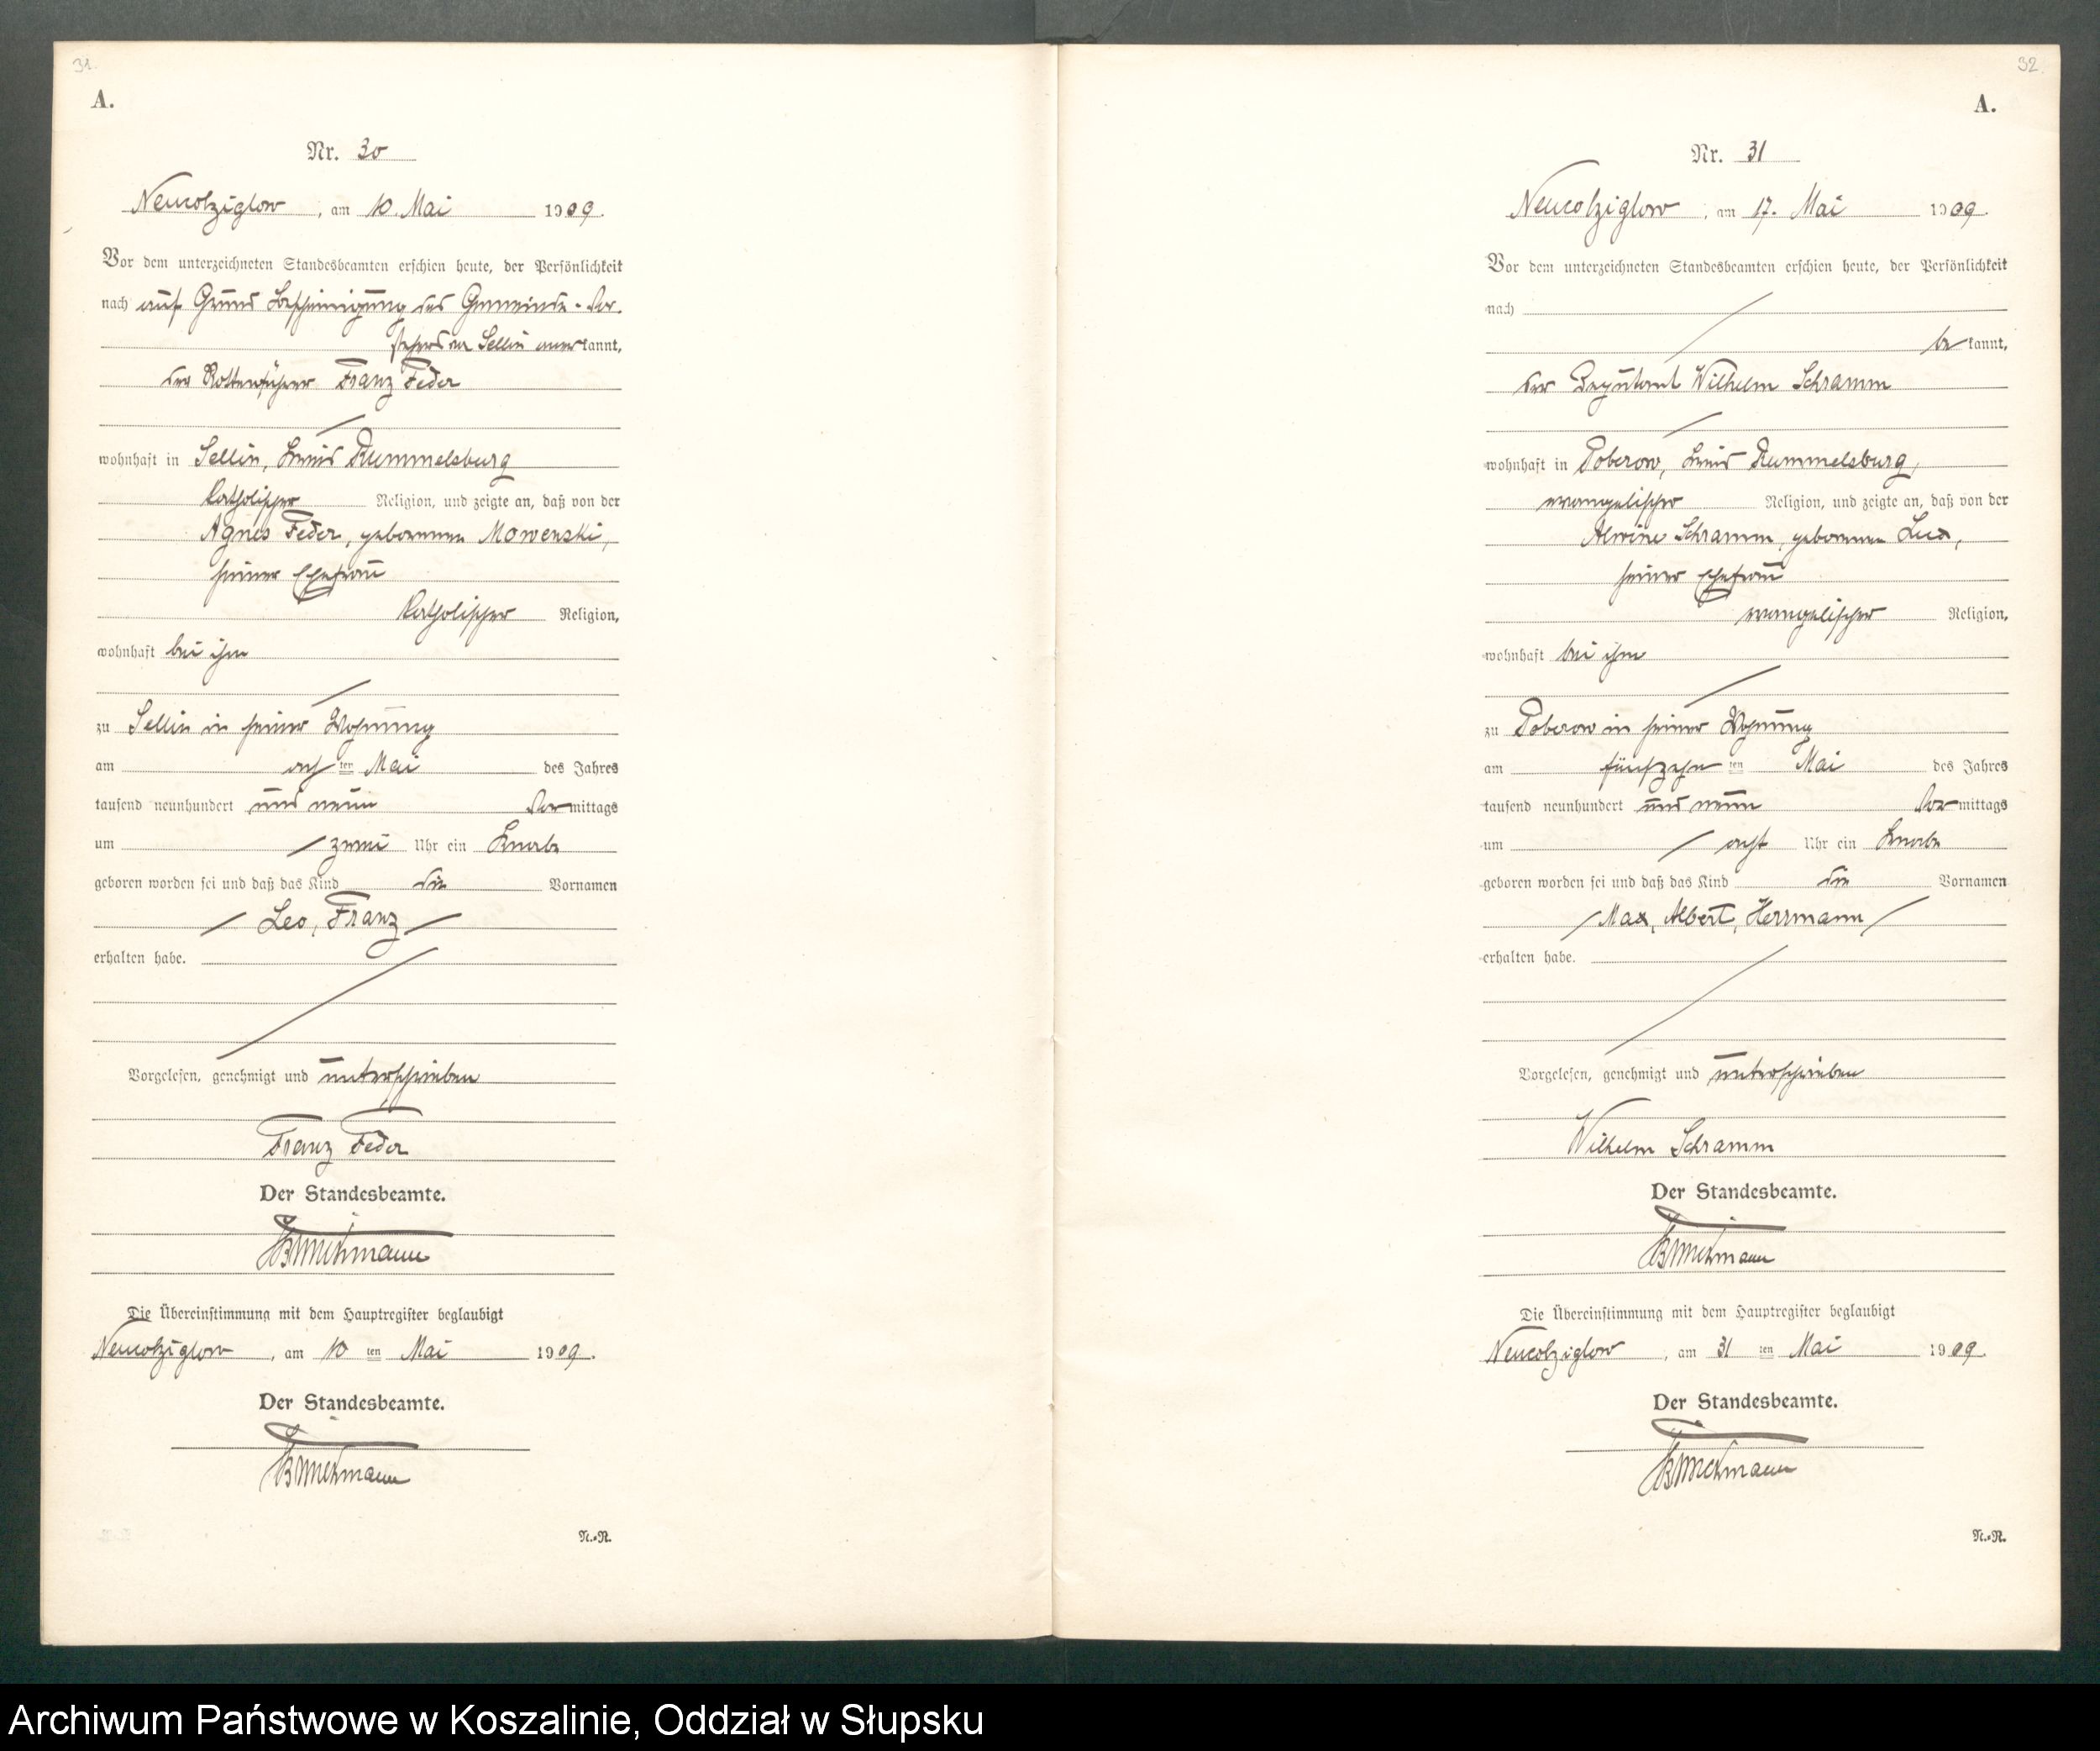 31.
A.
Nr. 30
Neucolziglow, am 10. Mai 1909.
Vor dem unterzeichneten Standesbeamten erschien heute, der Persönlichkeit
nach auf Grund Bescheinigung des Gemeinde-Vor-
stehers in Sellin anerkannt,
der Rottenführer Franz Feder
wohnhaft in Sellin, Kreis Rummelsburg
katholischer Religion, und zeigte an, daß von der
Agnes Feder, geborenen Mowenski,
seiner Ehefrau
katholischer Religion,
wohnhaft bei ihm
zu Sellin in seiner Wohnung
am achten Mai des Jahres
tausend neunhundert und neun Vormittags
um zwei Uhr ein Knabe
geboren worden sei und daß das Kind die Vornamen
Leo, Franz
erhalten habe.
Vorgelesen, genehmigt und unterschrieben
Franz Feder
Der Standesbeamte.
Die Übereinstimmung mit dem Hauptregister beglaubigt
Neucolziglow, am 10ten Mai 1909.
Der Standesbeamte.
N.=R.
32.
A.
Nr. 31
Neucolziglow, am 17. Mai 1909.
Vor dem unterzeichneten Standesbeamten erschien heute, der Persönlichkeit
nach
bekannt,
der Deputant Wilhelm Schramm
wohnhaft in Poberow, Kreis Rummelsburg,
evangelischer Religion, und zeigte an, daß von der
Alwine Schramm, geborenen Lux,
seiner Ehefrau
evangelischer Religion,
wohnhaft bei ihm
zu Poberow in seiner Wohnung
am fünfzehnten Mai des Jahres
tausend neunhundert und neun Vormittags
um acht Uhr ein Knabe
geboren worden sei und daß das Kind die Vornamen
Max, Albert, Herrmann
erhalten habe.
Vorgelesen, genehmigt und unterschrieben
Wilhelm Schramm
Der Standesbeamte.
Die Übereinstimmung mit dem Hauptregister beglaubigt
Neucolziglow, am 31ten Mai 1909.
Der Standesbeamte.
N.=R.
Archiwum Państwowe w Koszalinie, Oddział w Słupsku